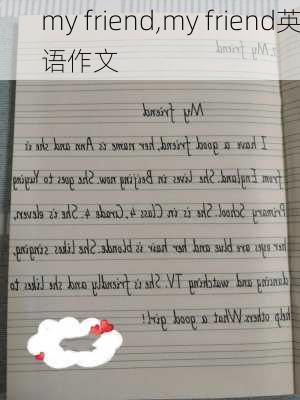 my friend,my friend英
语作文
My friend
My friend
I have a good friend, her name is Ann and she is
from England. She lives in Beijing now. She goes to Yuying
Primary School. She is in Class 4, Grade 4. She is eleven,
her eyes are blue and her hair is blonde. She likes singing,
dancing and watching TV. She is friendly and she likes to
help others. What a good girl!